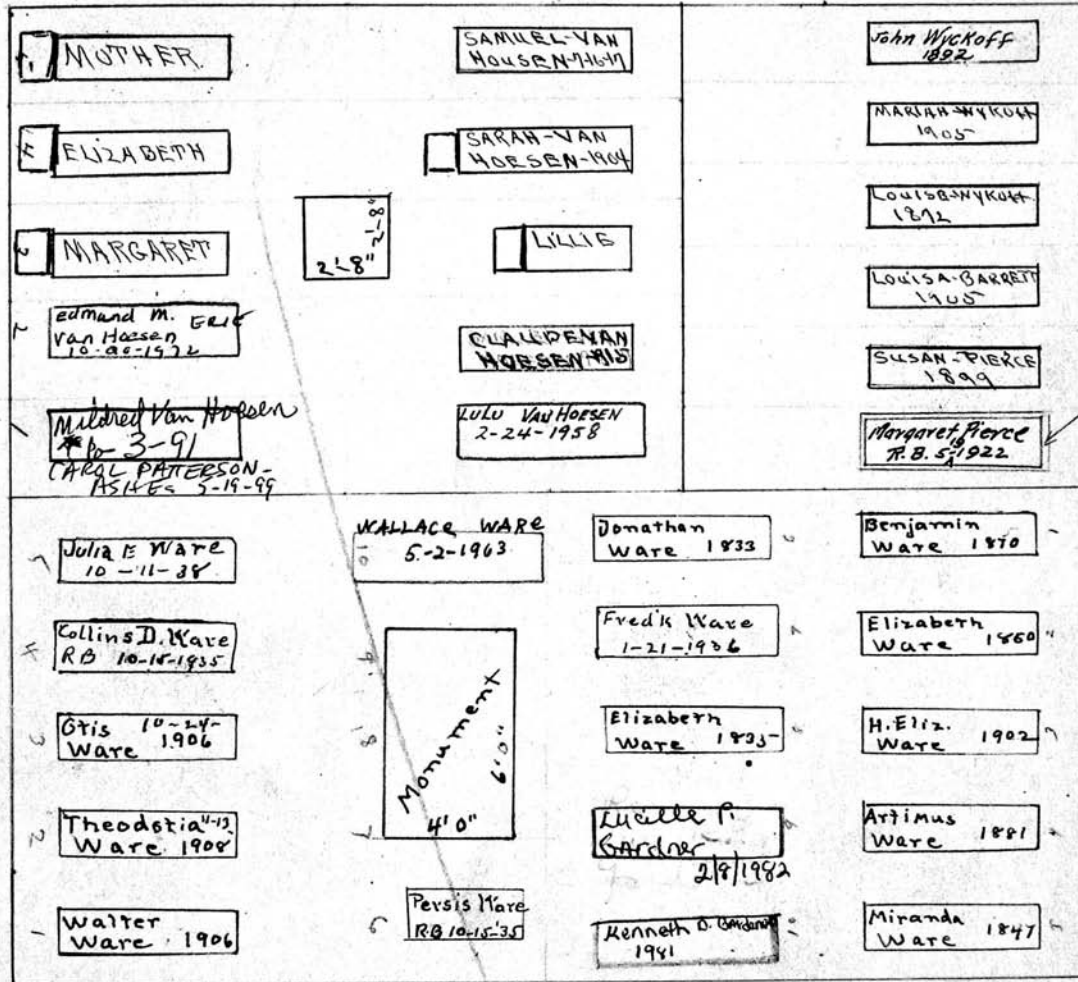 MOTHER
ELIZABETH
MARGARET
edmund M. ERIC
van Hoesen
Mildred Van Hoesen
3-91
CAROL PATTERSON-
ASHES 5-19-99
2'-8"
2'-8"
SAMUEL-VAN
HOUSEN-7-16-17
SARAH-VAN
HOESEN-1904
LILLIE
CLAUDE VAN
HOESEN-1915
LULU VAN HOESEN
2-24-1958
John Wyckoff
1892
MARIAH-WYKOFF
1905
LOUISE-WYKOFF
1872
LOUISA-BARRETT
1905
SUSAN-PIERCE
1899
Margaret Pierce
19
R.B. 5-1922
5
Julia E Ware
10-11-38
4
Collins D. Ware
RB 10-15-1935
3
10-24-
Ware 1906
2
Theodotia 11-13
Ware 1908
1
Walter
Ware 1906
WALLACE WARE
5-2-1963
10
9
8
7
Monument
6'0"
4'0"
6
Persis Ware
RB 10-15-35
Jonathan
Ware 1833
Fred'k Ware
1-21-1936
Elizabeth
Ware 1835
Lucille P.
Gardner
2/8/1982
Kenneth D. Gardner
1981
10
Benjamin
Ware 1870
1
Elizabeth
Ware 1850
H. Eliz.
Ware 1902
Artimus
Ware 1881
Miranda
Ware 1847